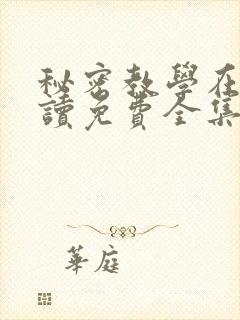 秘密教學在
讀免費全集
華庭